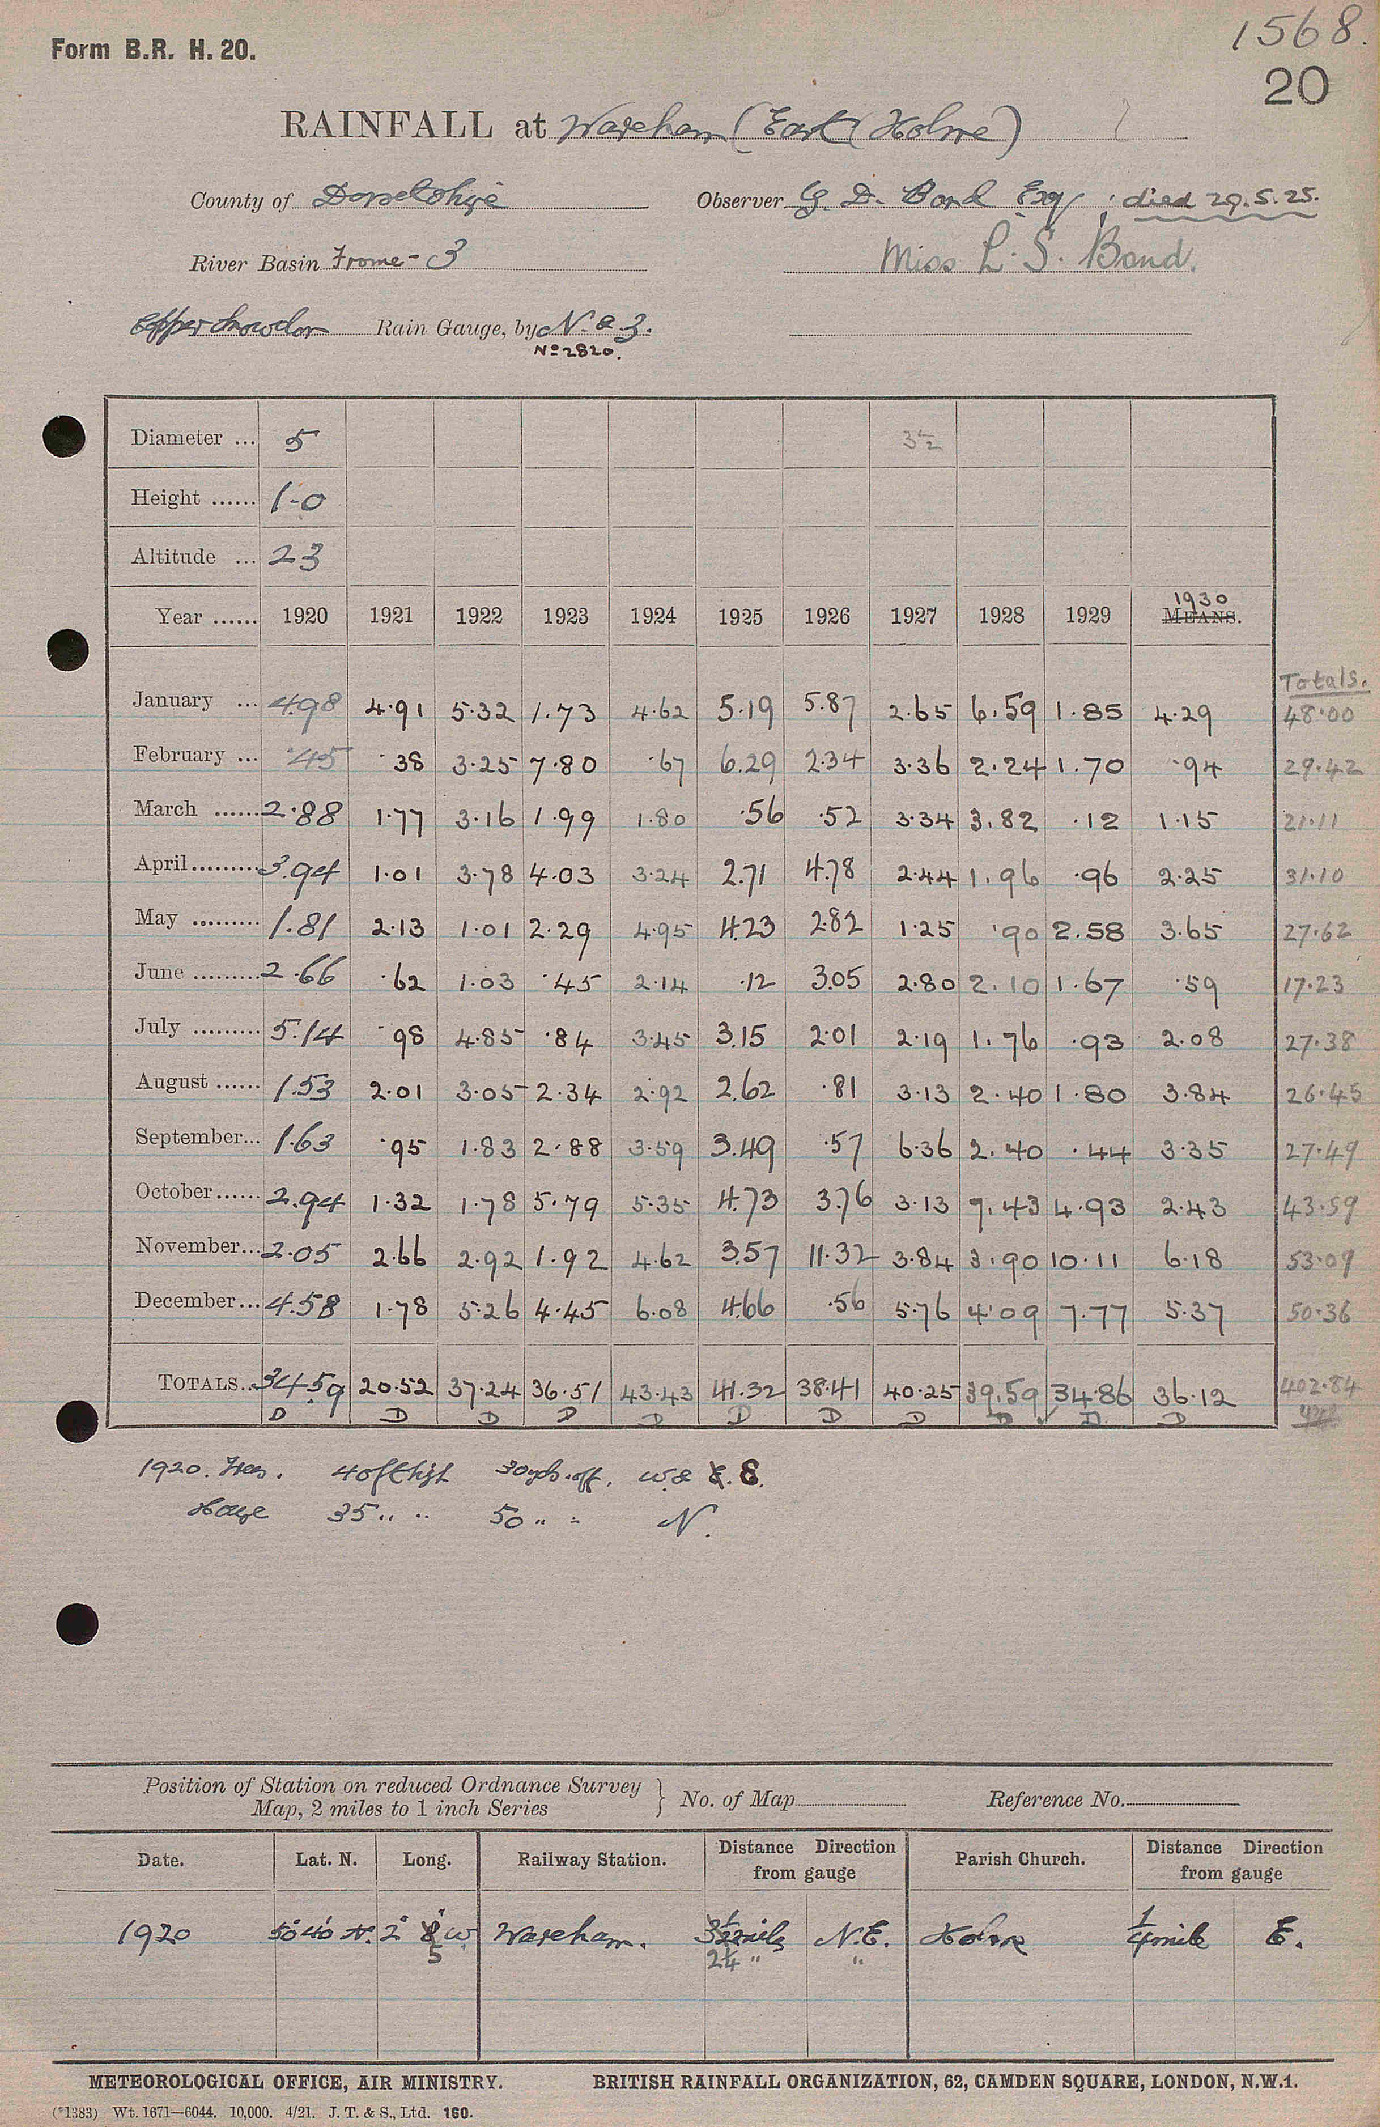 1568.
Form B.R. H. 20.
20
RAINFALL at Wareham (East Holme)
County of Dorsetshire Observer G. D. Bond Esq ; died 29.5.25.
River Basin Frome - 3 Miss L. S. Bond.
Copper Snowdon Rain Gauge, by N & Z.
No 2820.
Diameter ... 5 3½
Height ...... 1-0
Altitude ... 23
1930
Year ...... 1920 1921 1922 1923 1924 1925 1926 1927 1928 1929 MEANS.
Totals.
January ... 4.98 4.91 5.32 1.73 4.62 5.19 5.87 2.65 6.59 1.85 4.29 48.00
February ... .45 .38 3.25 7.80 .67 6.29 2.34 3.36 2.24 1.70 .94 29.42
March ...... 2.88 1.77 3.16 1.99 1.80 .56 .52 3.34 3.82 .12 1.15 21.11
April......... 3.94 1.01 3.78 4.03 3.24 2.71 4.78 2.44 1.96 .96 2.25 31.10
May ......... 1.81 2.13 1.01 2.29 4.95 4.23 2.82 1.25 .90 2.58 3.65 27.62
June ......... 2.66 .62 1.03 .45 2.14 .12 3.05 2.80 2.10 1.67 .59 17.23
July ......... 5.14 .98 4.85 .84 3.45 3.15 2.01 2.19 1.76 .93 2.08 27.38
August ...... 1.53 2.01 3.05 2.34 2.92 2.62 .81 3.13 2.40 1.80 3.84 26.45
September... 1.63 .95 1.83 2.88 3.59 3.49 .57 6.36 2.40 .44 3.35 27.49
October...... 2.94 1.32 1.78 5.79 5.35 4.73 3.76 3.13 7.43 4.93 2.43 43.59
November... 2.05 2.66 2.92 1.92 4.62 3.57 11.32 3.84 3.90 10.11 6.18 53.09
December... 4.58 1.78 5.26 4.45 6.08 4.66 .56 5.76 4.09 7.77 5.37 50.36
TOTALS... 34.59 20.52 37.24 36.51 43.43 41.32 38.41 40.25 39.59 34.86 36.12 402.84
D D D D D D D D D D D
1920. Trees. 40 ft high 30 yds. off. W. & E.
House 35 " " 50 " " N.
Position of Station on reduced Ordnance Survey Map, 2 miles to 1 inch Series } No. of Map Reference No.
Date. Lat. N. Long. Railway Station. Distance Direction from gauge Parish Church. Distance Direction from gauge
1920 50° 40' N. 2° 8' W Wareham. 3½ miles N.E. Holme ¼ mile E.
5 2¼ " "
METEOROLOGICAL OFFICE, AIR MINISTRY. BRITISH RAINFALL ORGANIZATION, 62, CAMDEN SQUARE, LONDON, N.W.1.
(*1383) Wt. 1671—6044. 10,000. 4/21. J. T. & S., Ltd. 160.